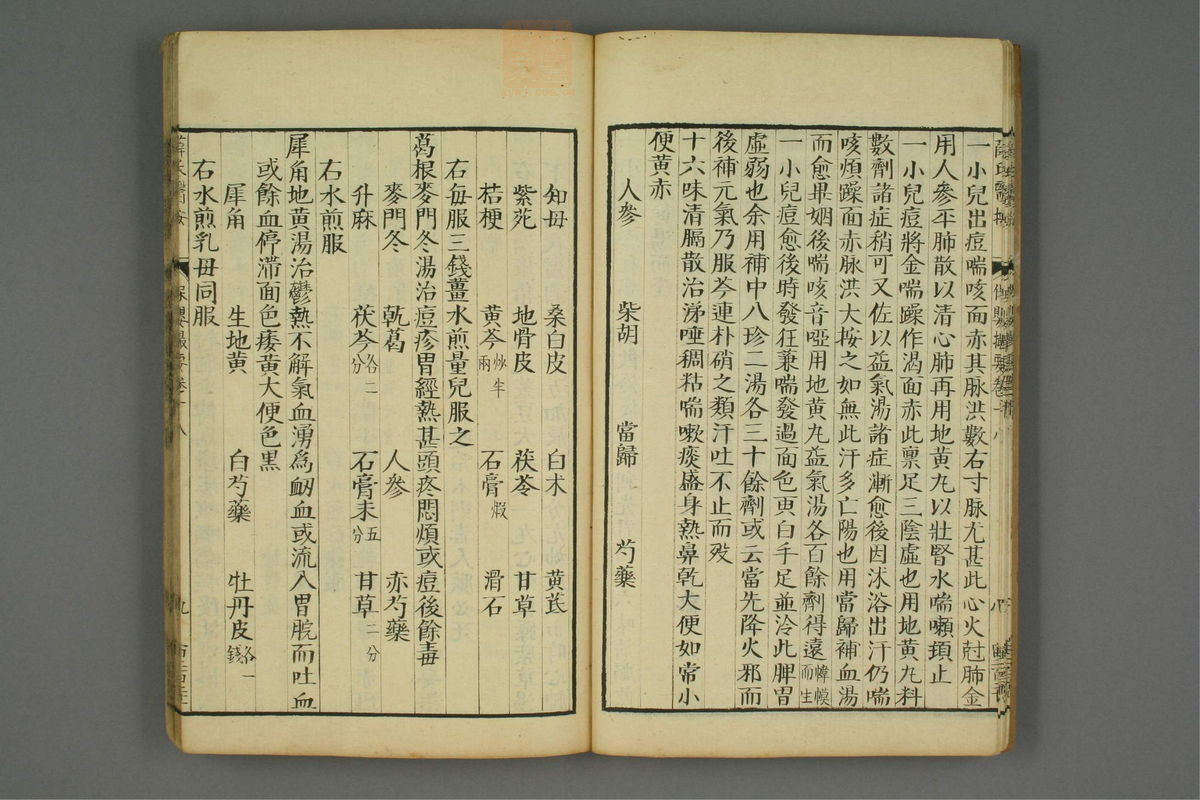 一小兒出痘喘咳而赤其脉洪數右寸脉尤甚此心火尅肺金
用人參平肺散以清心肺再用地黃丸以壯腎水喘嗽頓止
一小兒痘將金喘躁作渴面赤此禀足三陰虛也用地黃丸料
數劑諸症稍可又佐以益氣湯諸症漸愈後因沐浴出汗仍喘
咳煩躁面赤脉洪大按之如無此汗多亡陽也用當歸補血湯
而愈畢姻後喘咳音啞用地黃丸益氣湯各百餘劑得遠幃幙而生
一小兒痘愈後時發狂兼喘發過面色更白手足並冷此脾胃
虛弱也余用補中八珍二湯各三十餘劑或云當先降火邪而
後補元氣乃服芩連朴硝之類汗吐不止而歿
十六味清膈散治涕唾稠粘喘嗽痰盛身熱鼻乾大便如常小
便黃赤
人參 柴胡 當歸 芍藥
知母 桑白皮 白术 黃芪
紫菀 地骨皮 茯苓 甘草
桔梗 黃芩炒半兩 石膏煅 滑石
右毎服三錢薑水煎量兒服之
葛根麥門冬湯治痘疹胃經熱甚頭疼悶煩或痘後餘毒
麥門冬 乾葛 人參 赤芍藥
升麻 茯苓各二分 石膏末五分 甘草二分
右水煎服
犀角地黃湯治鬱熱不解氣血湧爲衂血或流入胃脘而吐血
或餘血停滯面色痿黃大便色黑
犀角 生地黃 白芍藥 牡丹皮各一錢
右水煎乳母同服
薛氏醫按 保嬰撮要卷十八 九